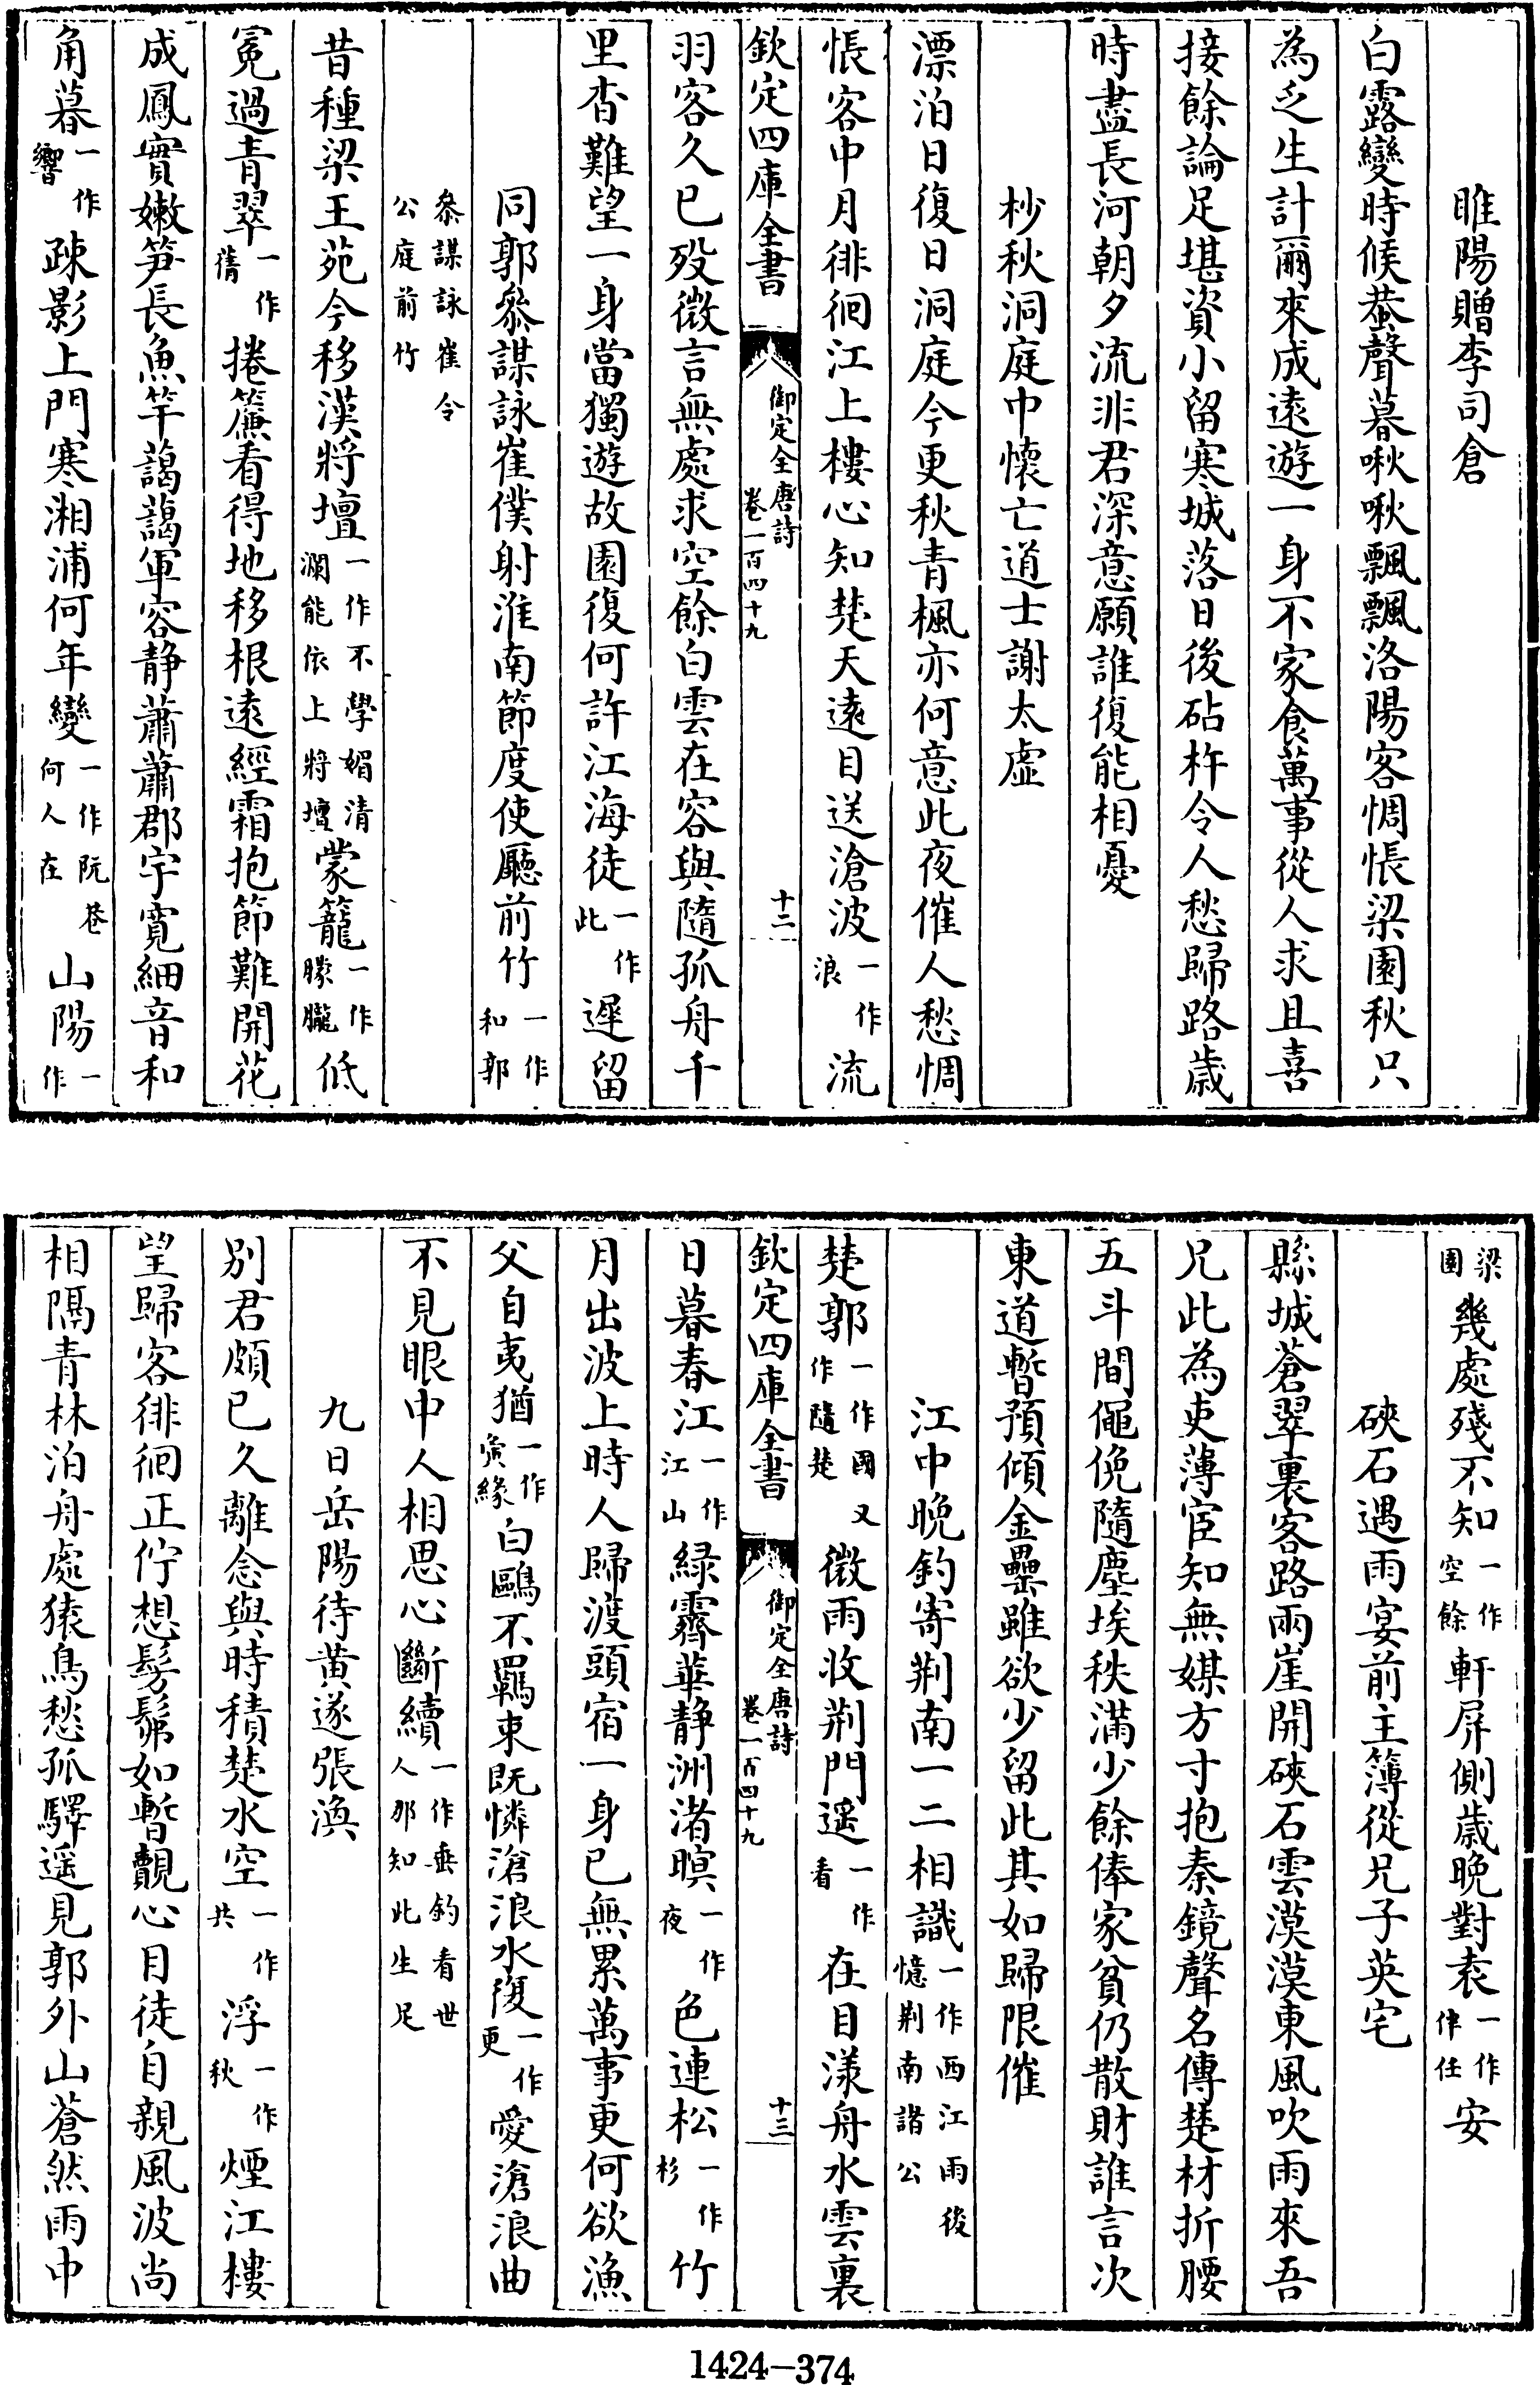 睢陽贈李司倉
白露變時候蛬聲暮啾啾飄飄洛陽客惆悵梁園秋只
為乏生計爾來成遠遊一身不家食萬事從人求且喜
接餘論足堪資小留寒城落日後砧杵令人愁歸路歳
時盡長河朝夕流非君深意願誰復能相憂
杪秋洞庭中懷亡道士謝太虛
漂泊日復日洞庭今更秋青楓亦何意此夜催人愁惆
悵客中月徘徊江上樓心知楚天遠目送滄波一作浪流
欽定四庫全書 御定全唐詩 卷一百四十九 十二
羽客久已殁微言無處求空餘白雲在容與隨孤舟千
里杳難望一身當獨遊故園復何許江海徒一作此遲留
同郭叅謀詠崔僕射淮南節度使廳前竹一作和郭
叅謀詠崔令公庭前竹
昔種梁王苑今移漢將壇一作不學媚清瀾能依上將壇蒙籠一作朦朧低
冕過青翠一作蒨捲簾看得地移根遠經霜抱節難開花
成鳳實嫩笋長魚竿藹藹軍容静蕭蕭郡宇寛細音和
角暮一作響疎影上門寒湘浦何年變一作阮巷何人在山陽一作
梁園幾處殘不知一作空餘軒屏側歳晚對袁一作伴任安
硤石遇雨宴前主簿從兄子英宅
縣城蒼翠裏客路兩崖開硤石雲漠漠東風吹雨來吾
兄此為吏薄宦知無媒方寸抱秦鏡聲名傳楚材折腰
五斗間僶俛隨塵埃秩滿少餘俸家貧仍散財誰言次
東道暫預傾金罍雖欲少留此其如歸限催
江中晚釣寄荆南一二相識一作西江雨後憶荆南諸公
楚郭一作國又作隨楚微雨收荆門遥一作看在目漾舟水雲裏
欽定四庫全書 御定全唐詩 卷一百四十九 十三
日暮春江一作江山緑霽華静洲渚暝一作夜色連松一作杉竹
月出波上時人歸渡頭宿一身已無累萬事更何欲漁
父自夷猶一作夤緣白鷗不羈束既憐滄浪水復一作更愛滄浪曲
不見眼中人相思心斷續一作垂釣看世人那知此生足
九日岳陽待黄遂張渙
别君頗已久離念與時積楚水空一作共浮一作秋煙江樓
望歸客徘徊正佇想髣髴如暫覿心目徒自親風波尚
相隔青林泊舟處猿鳥愁孤驛遥見郭外山蒼然雨中
1424-374